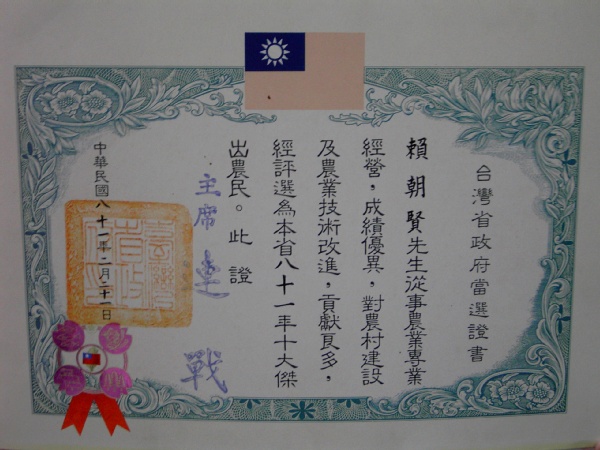 台灣省政府當選證書
賴朝賢先生從事農業專業
經營，成績優異，對農村建設
及農業技術改進，貢獻良多，
經評選為本省八十一年十大傑
出農民。此證
主席 連戰
中華民國八十一年二月二十一日